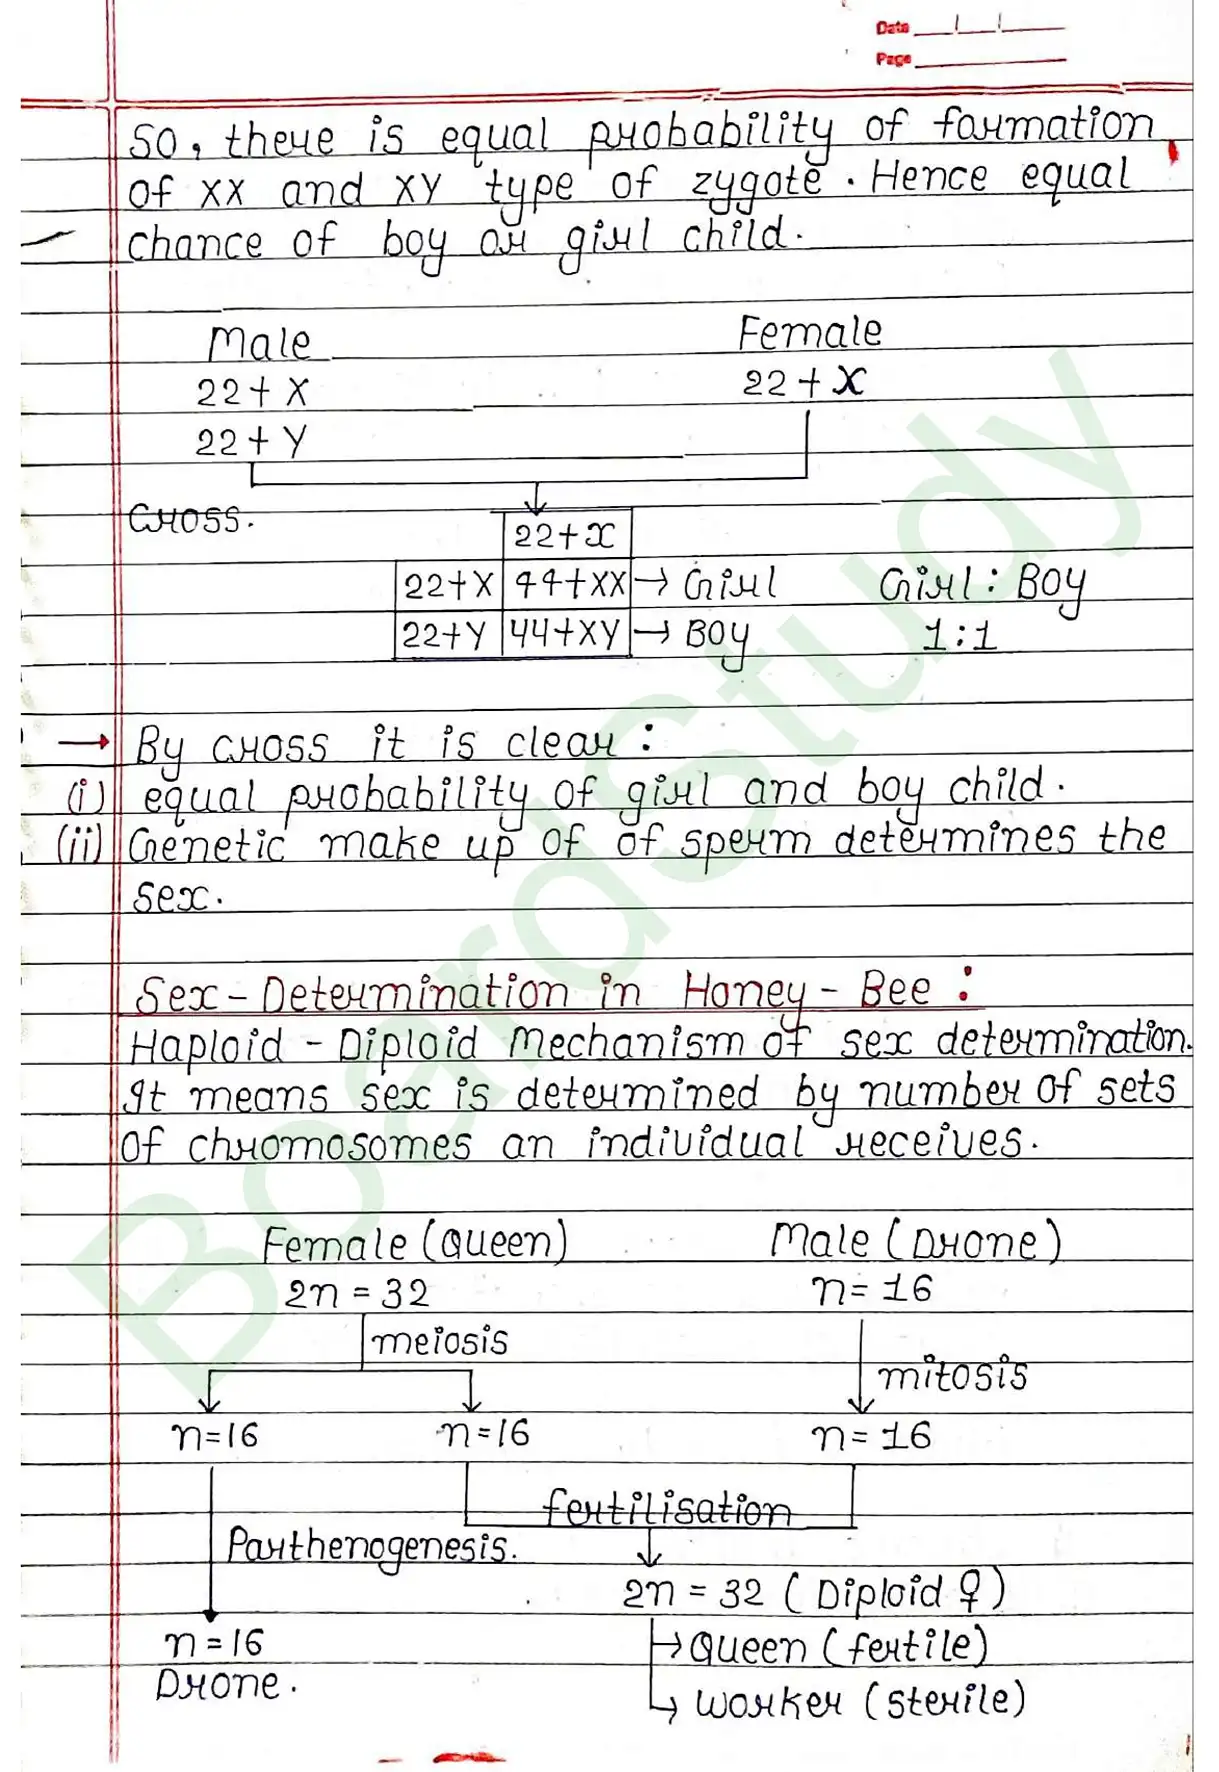 Date
Page
So, there is equal probability of formation
of XX and XY type of zygote. Hence equal
chance of boy or girl child.
Male Female
22+X 22+X
22+Y
Cross.
22+X
22+X 44+XX → Girl Girl : Boy
22+Y 44+XY → Boy 1:1
→ By cross it is clear :
(i) equal probability of girl and boy child.
(ii) Genetic make up of of sperm determines the
sex.
Sex-Determination in Honey-Bee :
Haploid - Diploid Mechanism of sex determination.
It means sex is determined by number of sets
of chromosomes an individual receives.
Female (Queen) Male (Drone)
2n = 32 n=16
meiosis
mitosis
n=16 n=16 n=16
fertilisation
Parthenogenesis.
2n = 32 (Diploid ♀)
n=16 → Queen (fertile)
Drone. → worker (sterile)
BoardStudy